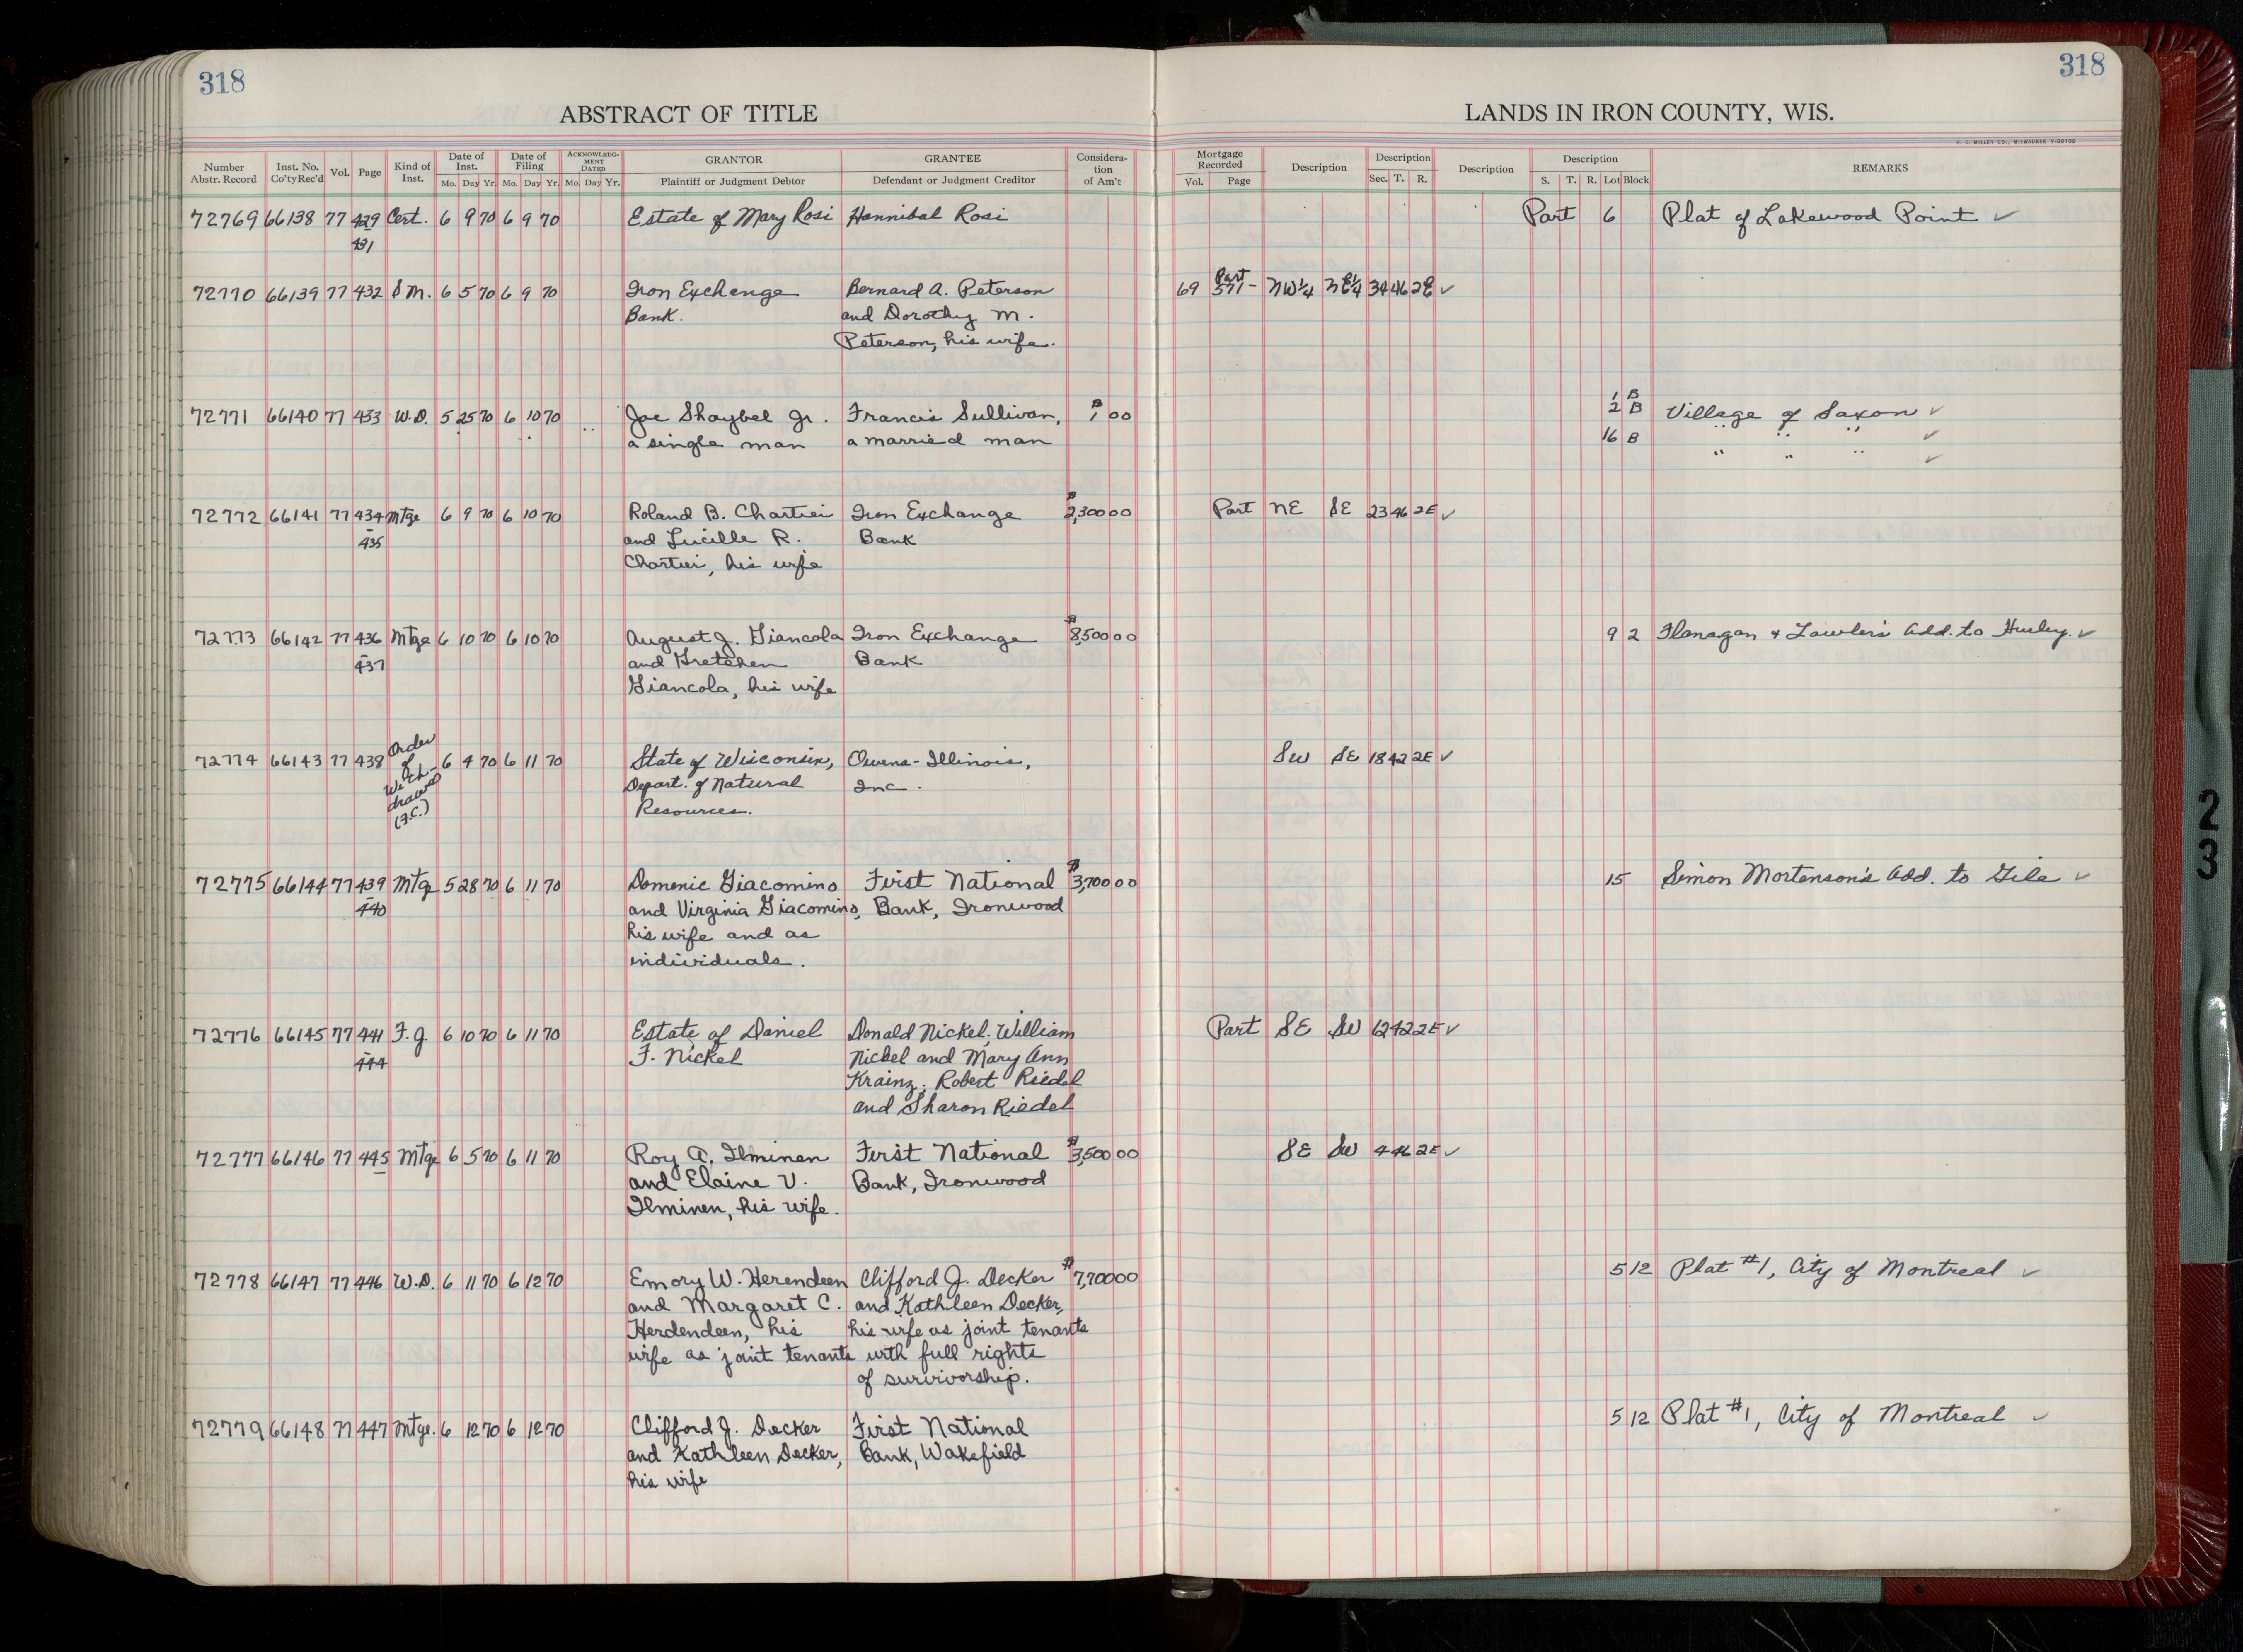 318
318
ABSTRACT OF TITLE
LANDS IN IRON COUNTY, WIS.
H. C. MILLER CO., MILWAUKEE
Number Abstr. Record Inst. No. Co'ty Rec'd Vol. Page Kind of Inst. Date of Inst. Mo. Day Yr. Date of Filing Mo. Day Yr. ACKNOWLEDGMENT DATED Mo. Day Yr. GRANTOR Plaintiff or Judgment Debtor GRANTEE Defendant or Judgment Creditor Consideration of Am't Mortgage Recorded Vol. Page Description Description Sec. T. R. Description Description S. T. R. Lot Block REMARKS
72769 66138 77 429 Cert. 6 9 70 6 9 70 Estate of Mary Rosi Hannibal Rosi Part 6 Plat of Lakewood Point ✓
431
72770 66139 77 432 S M. 6 5 70 6 9 70 Iron Exchange Bernard A. Peterson 69 Part 571- NW¼ NE¼ 34 46 2E ✓
Bank. and Dorothy M.
Peterson, his wife.
1 B
72771 66140 77 433 W.D. 5 25 70 6 10 70 Joe Shaybel Jr. Francis Sullivan, $1 00 2 B Village of Saxon ✓
a single man a married man 16 B " " " ✓
" " " ✓
72772 66141 77 434 Mtge 6 9 70 6 10 70 Roland B. Chartier Iron Exchange $2,300 00 Part NE SE 23 46 2E ✓
435 and Lucille R. Bank
Chartier, his wife
72773 66142 77 436 Mtge 6 10 70 6 10 70 August J. Giancola Iron Exchange $8,500 00 9 2 Flanagan & Lawler's Add. to Hurley. ✓
437 and Gretchen Bank
Giancola, his wife
72774 66143 77 438 Order of With-drawal (F.C.) 6 4 70 6 11 70 State of Wisconsin, Owens-Illinois, SW SE 18 42 2E ✓
Depart. of Natural Inc.
Resources.
72775 66144 77 439 Mtge 5 28 70 6 11 70 Domenic Giacomino First National $3,700 00 15 Simon Mortenson's Add. to Gile ✓
440 and Virginia Giacomino, Bank, Ironwood
his wife and as
individuals.
72776 66145 77 441 F.J. 6 10 70 6 11 70 Estate of Daniel Donald Nickel; William Part SE SW 6 242 2E ✓
444 F. Nickel Nickel and Mary Ann
Krainz; Robert Riedel
and Sharon Riedel
72777 66146 77 445 Mtge 6 5 70 6 11 70 Roy A. Ilminen First National $3,500 00 SE SW 4 46 2E ✓
and Elaine V. Bank, Ironwood
Ilminen, his wife.
72778 66147 77 446 W.D. 6 11 70 6 12 70 Emory W. Herendeen Clifford J. Decker $7,700 00 5 12 Plat #1, City of Montreal ✓
and Margaret C. and Kathleen Decker,
Herdendeen, his his wife as joint tenants
wife as joint tenants with full rights
of survivorship.
72779 66148 77 447 Mtge. 6 12 70 6 12 70 Clifford J. Decker First National 5 12 Plat #1, City of Montreal ✓
and Kathleen Decker, Bank, Wakefield
his wife
23